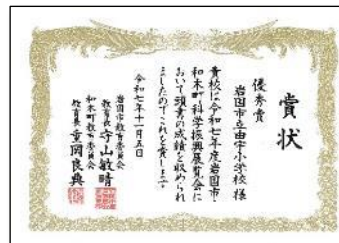 賞状
優秀賞
岩国市立由宇小学校 様
貴校は令和七年度岩国市・
和木町科学振興展覧会に
おいて頭書の成績を収められ
ましたのでこれを賞します
令和七年十一月五日
岩国市教育委員会
教育長 守山敏晴
和木町教育委員会
教育長 重岡良典